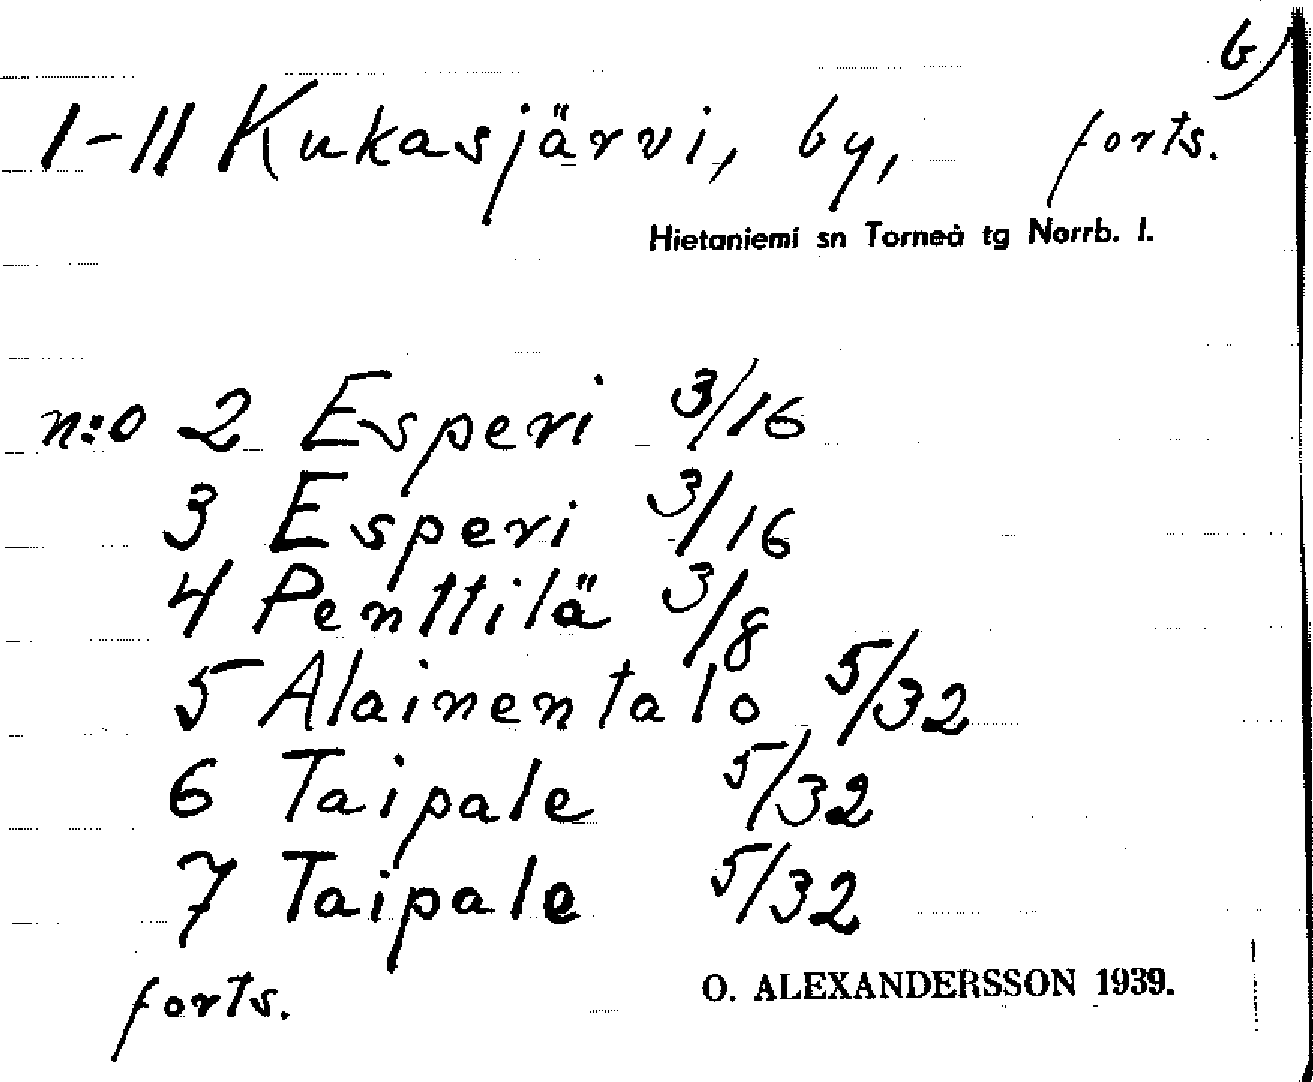 b)
1-11 Kukasjärvi, by, forts.
Hietaniemi sn Torneå tg Norrb. l.
n:o 2 Esperi 3/16
3 Esperi 3/16
4 Penttilä 3/8
5 Alainentalo 5/32
6 Taipale 5/32
7 Taipale 5/32
forts.
O. ALEXANDERSSON 1939.